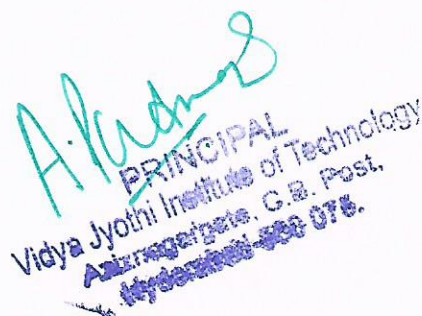 PRINCIPAL
Vidya Jyothi Institute of Technology
Aziznagar gate, C.B. Post,
Hyderabad-500 075.